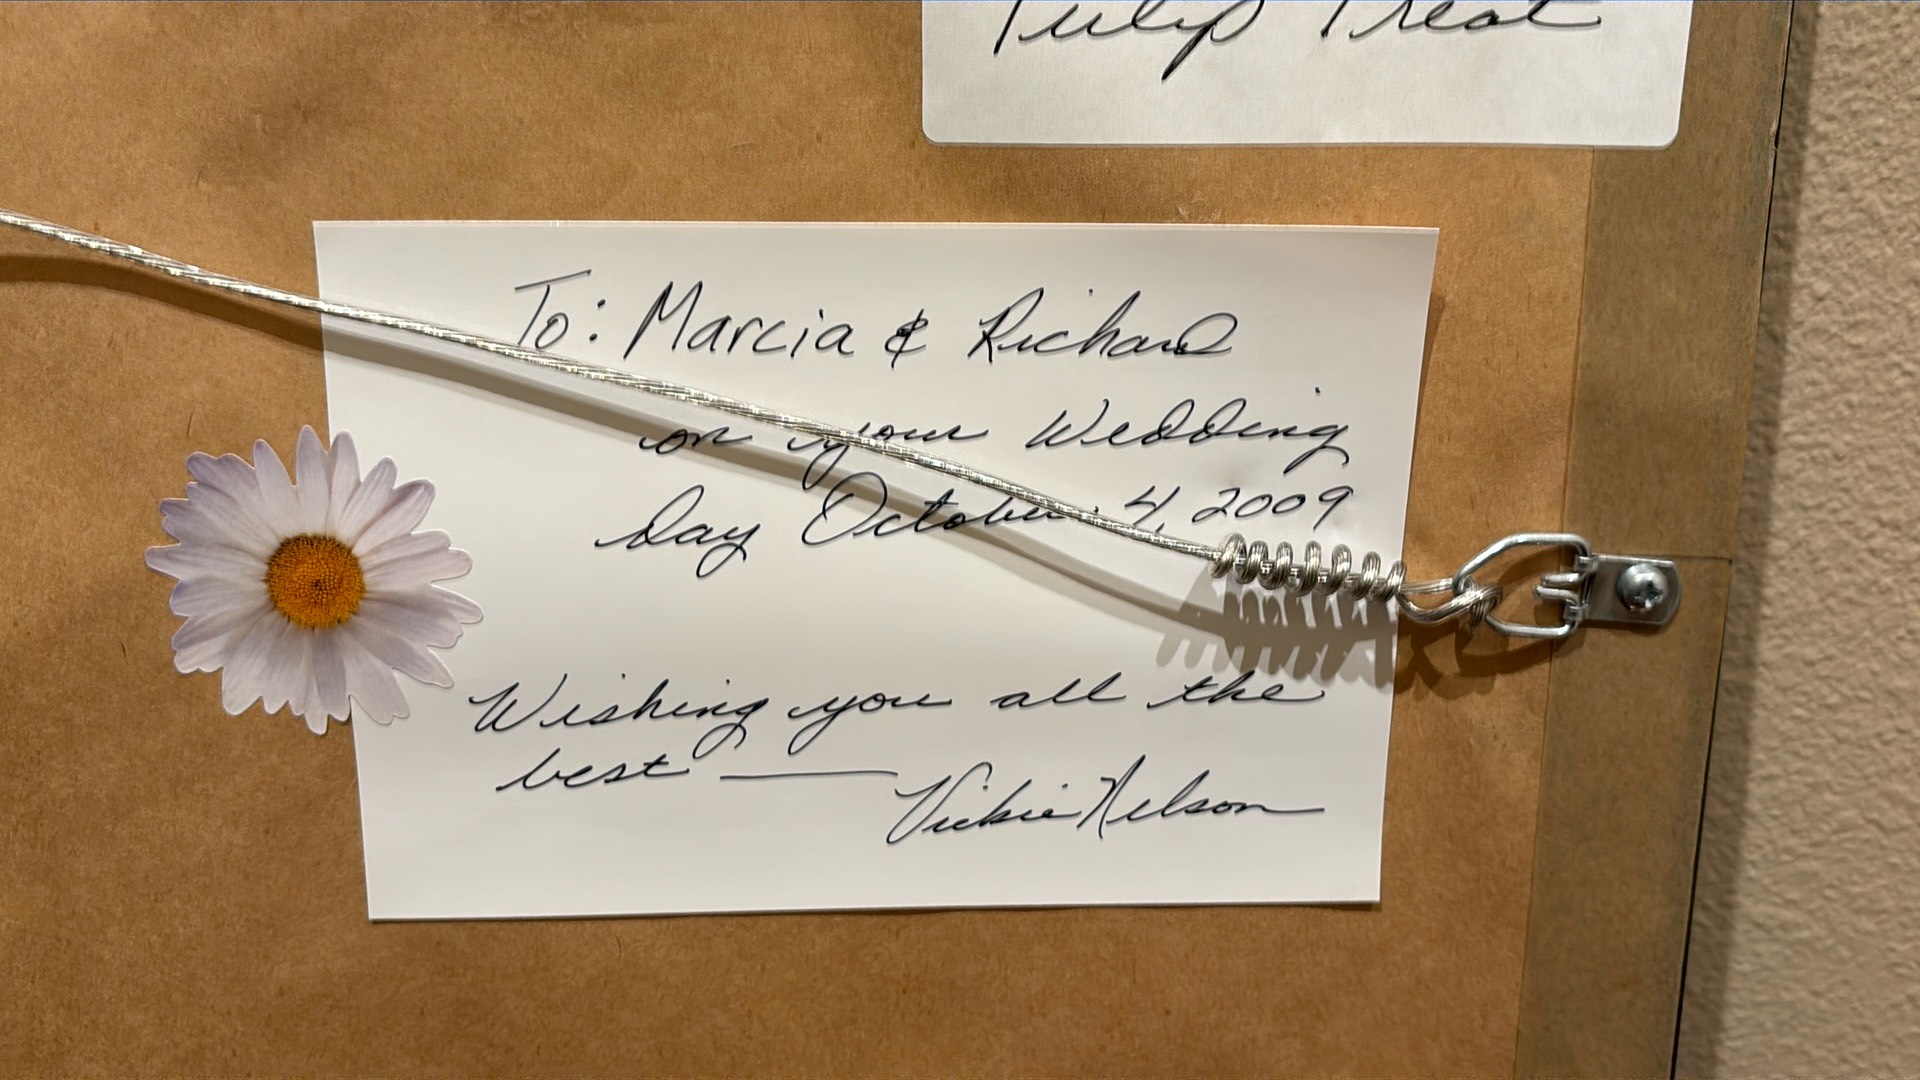 Tulip Treat
To: Marcia & Richard
on your Wedding
day October 4, 2009
Wishing you all the
best — Vickie Nelson